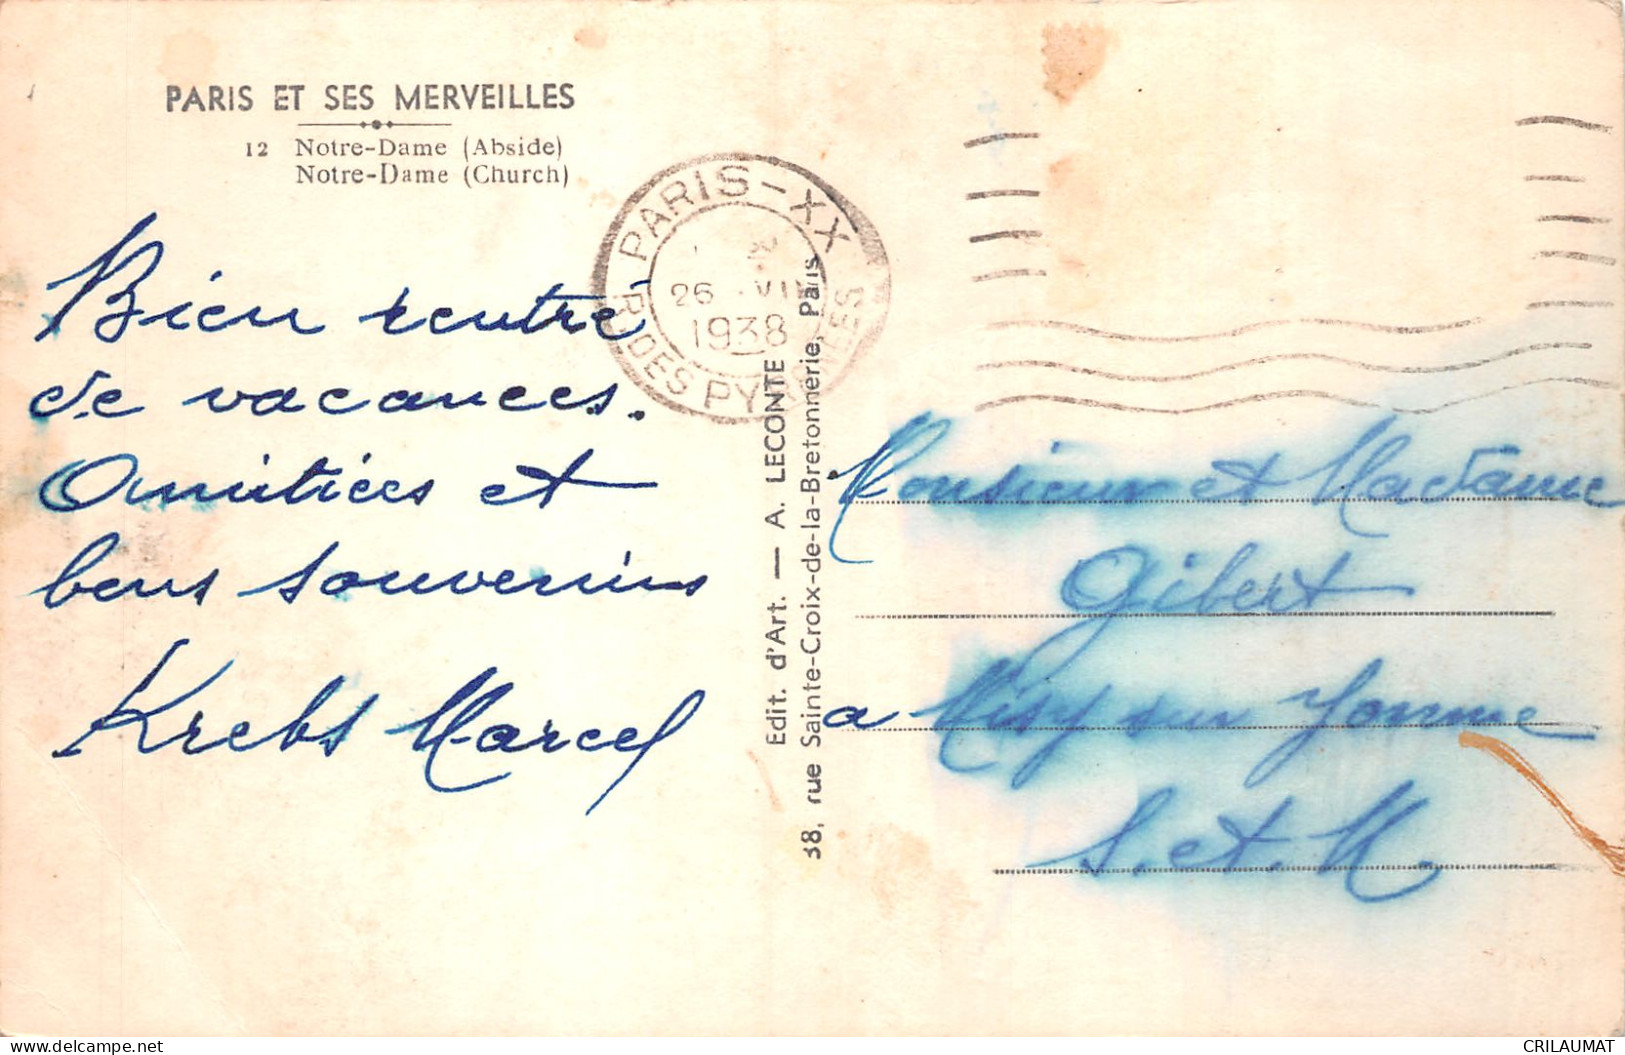 PARIS ET SES MERVEILLES
12 Notre-Dame (Abside)
Notre-Dame (Church)
PARIS-XX
26 VII
1938
R. DES PYRENEES
Bien rentré
de vacances.
Amitiées et
bons souvenirs
Krebs Marcel
Edit. d'Art. — A. LECONTE
38, rue Sainte-Croix-de-la-Bretonnerie, Paris
Monsieur et Madame
Gibert
a Misy sur Yonne
S. et. M.
CRILAUMAT